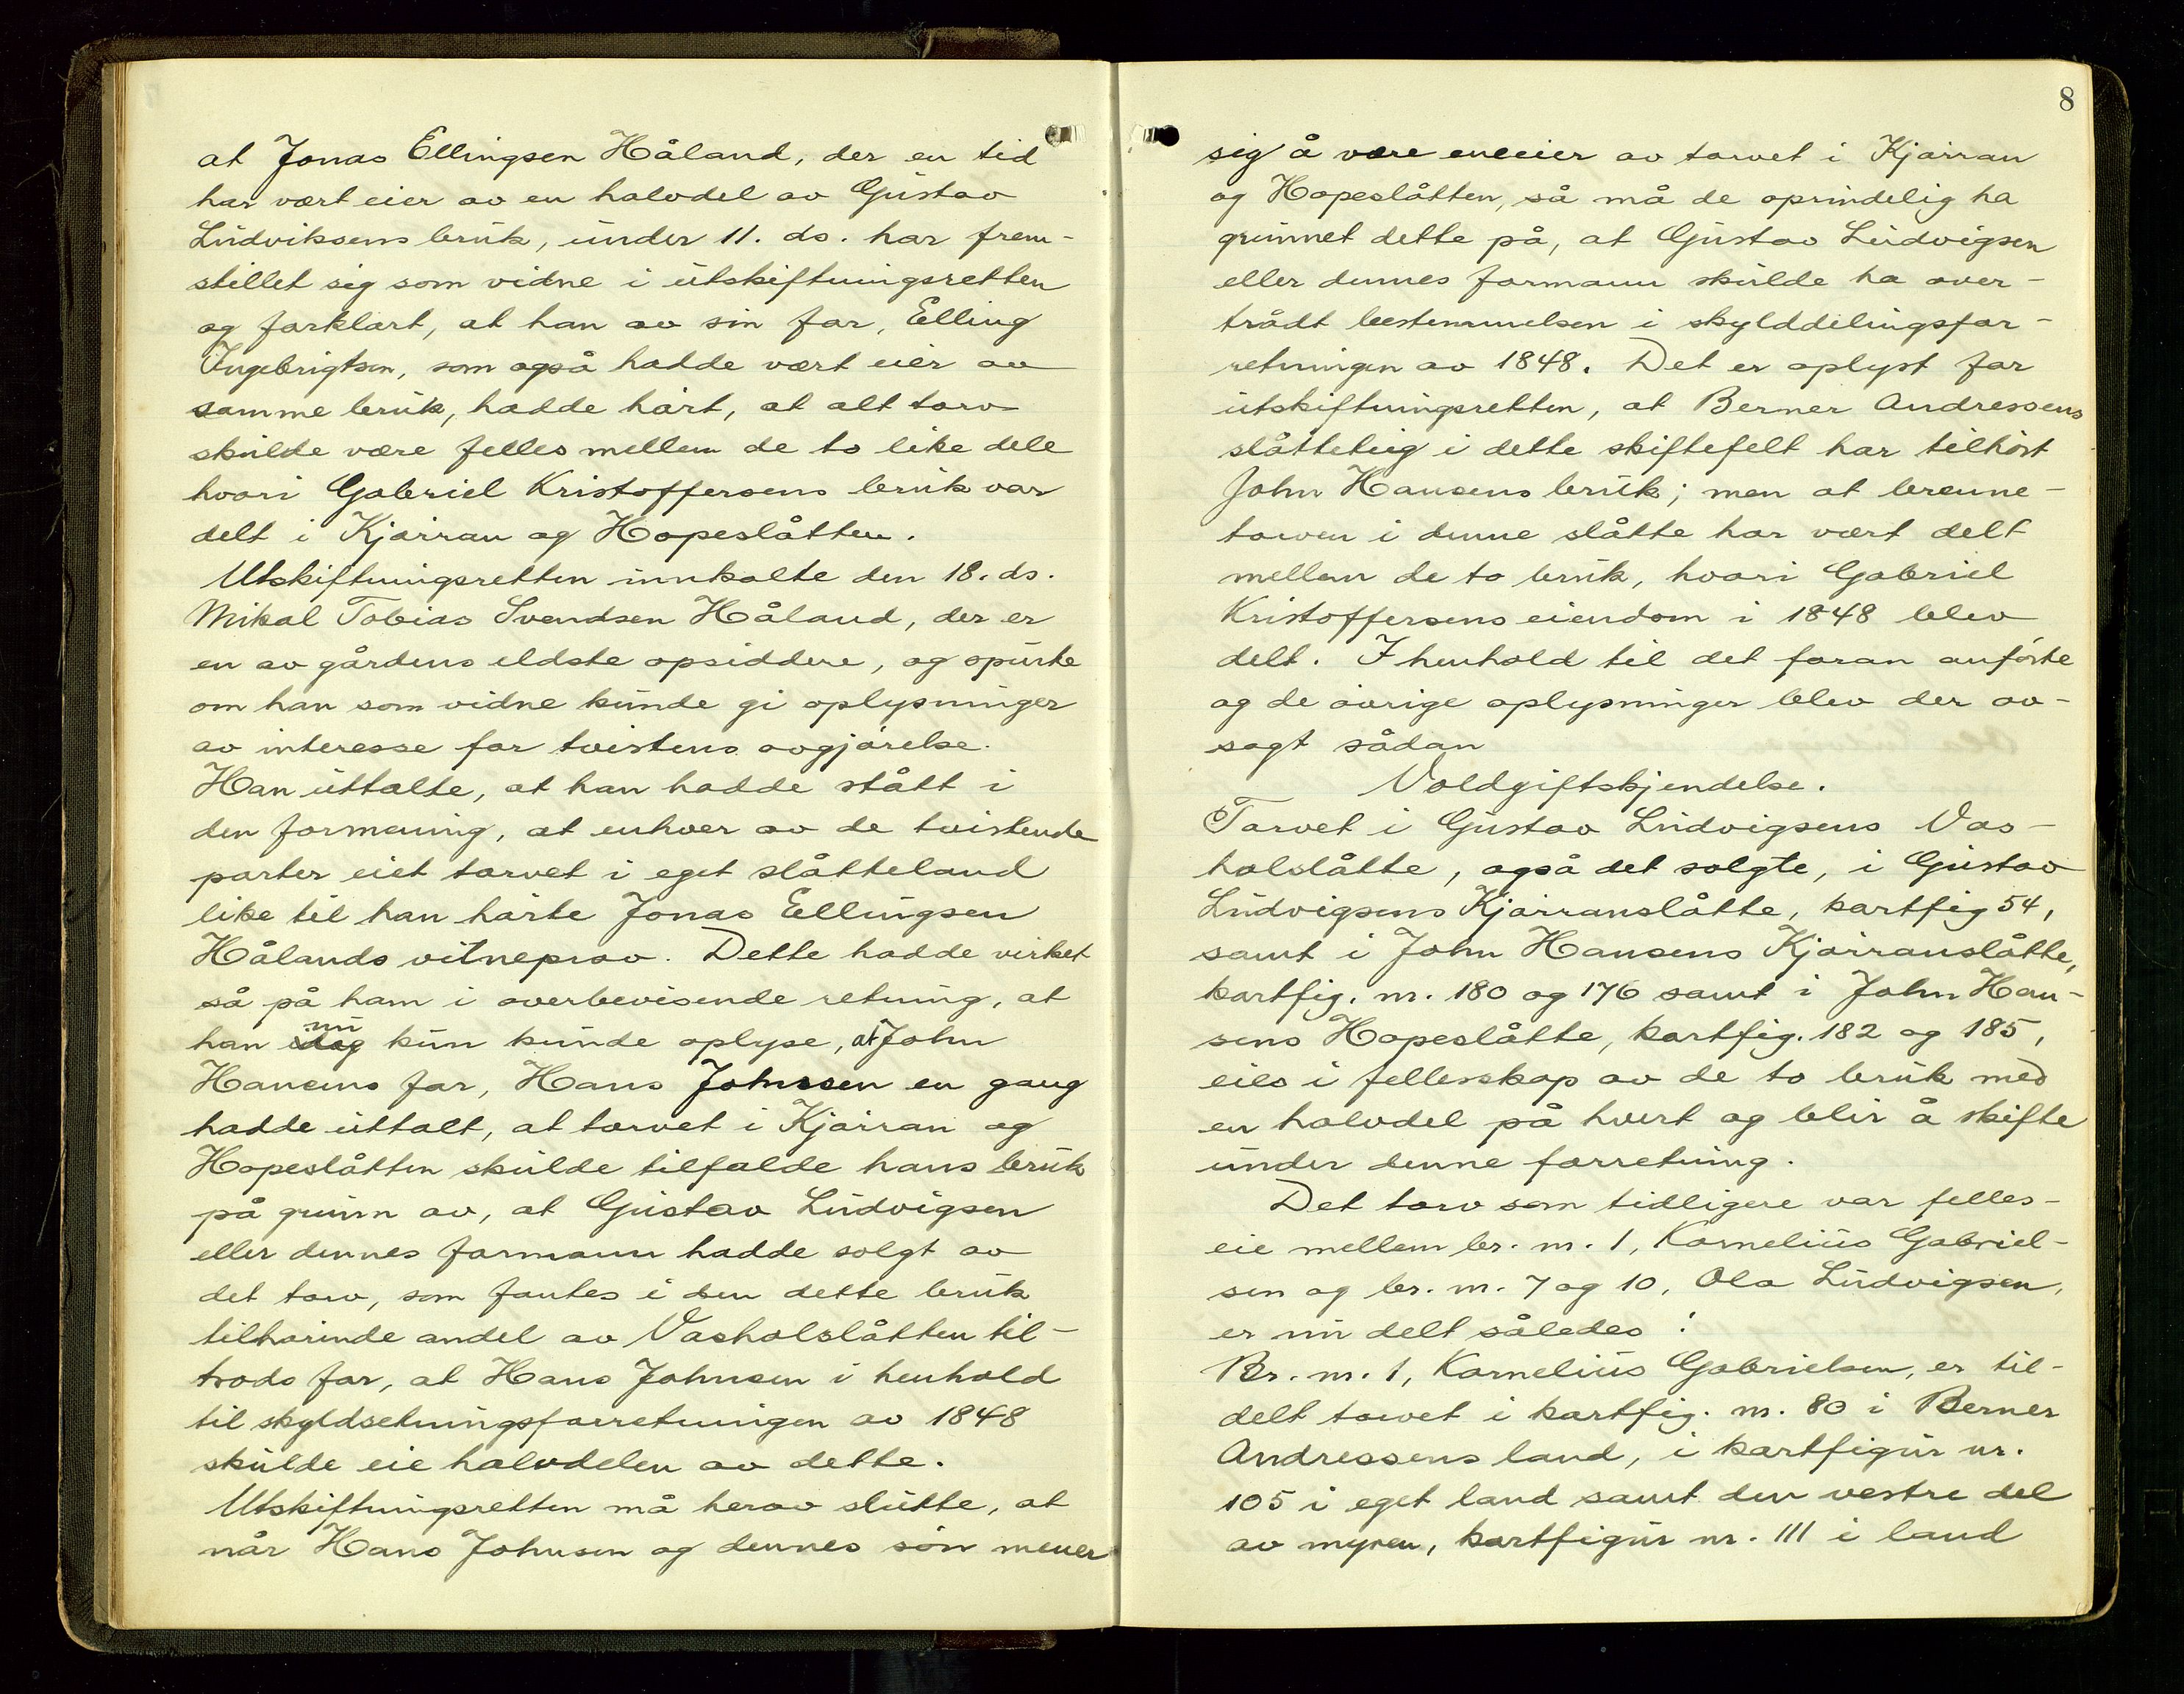 at Jonas Ellingsen Håland, der en tid
har vært eier av en halvdel av Gustav
Ludviksens bruk, under 11. ds. har frem-
stillet sig som vidne i utskiftningsretten
og forklart, at han av sin far, Elling
Ingebrigtsen, som også hadde vært eier av
samme bruk, hadde hört, at alt torv
skulde være felles mellem de to like dele
hvori Gabriel Kristoffersens bruk var
delt i Kjørran og Hopeslåtten.
Utskiftningsretten innkalte den 18. ds.
Mikal Tobias Svendsen Håland, der er
en av gårdens eldste opsiddere, og spurte
om han som vidne kunde gi oplysninger
av interesse for tvistens avgjörelse.
Han uttalte, at han hadde stått i
den formening, at enhver av de tvistende
parter eiet torvet i eget slåtteland
like til han hörte Jonas Ellingsen
Hålands vitneprov. Dette hadde virket
så på ham i overbevisende retning, at
han nu kun kunde oplyse, at John
Hansens far, Hans Johnsen en gang
hadde uttalt, at torvet i Kjörran og
Hopeslåtten skulde tilfalde hans bruk
på grunn av, at Gustav Ludvigsen
eller dennes formann hadde solgt av
det torv, som fantes i den dette bruk
tilhörende andel av Vasholslåtten til-
trods for, at Hans Johnsen i henhold
til skyldsetningsforretningen av 1848
skulde eie halvdelen av dette.
Utskiftningsretten må herav slutte, at
når Hans Johnsen og dennes sön mener
8
sig å være eneeier av torvet i Kjörran
og Hopeslåtten, så må de oprindelig ha
grunnet dette på, at Gustav Ludvigsen
eller dennes formann skulde ha over-
trådt bestemmelsen i skylddelingsfor-
retningen av 1848. Det er oplyst for
utskiftningsretten, at Berner Andressens
slåtteteig i dette skiftefelt har tilhört
John Hansens bruk; men at brenne-
torven i denne slåtte har vært delt
mellem de to bruk, hvori Gabriel
Kristoffersens eiendom i 1848 blev
delt. I henhold til det foran anförte
og de övrige oplysninger blev der av-
sagt sådan
Voldgiftskjendelse.
Torvet i Gustav Ludvigsens Vas-
holslåtte, også det solgte, i Gustav
Ludvigsens Kjörranslåtte, kartfig 54,
samt i John Hansens Kjörranslåtte,
kartfig. nr. 180 og 176 samt i John Han-
sens Hopeslåtte, kartfig. 182 og 185,
eies i fellesskap av de to bruk med
en halvdel på hvert og blir å skifte
under denne forretning.
Det torv som tidligere var felles-
eie mellem br. nr. 1, Kornelius Gabriel-
sen og br. nr. 7 og 10, Ola Ludvigsen,
er nu delt således:
Br. nr. 1, Kornelius Gabrielsen, er til-
delt torvet i kartfig. nr. 80 i Berner
Andressens land, i kartfigur nr.
105 i eget land samt den vestre del
av myren, kartfigur nr. 111 i land